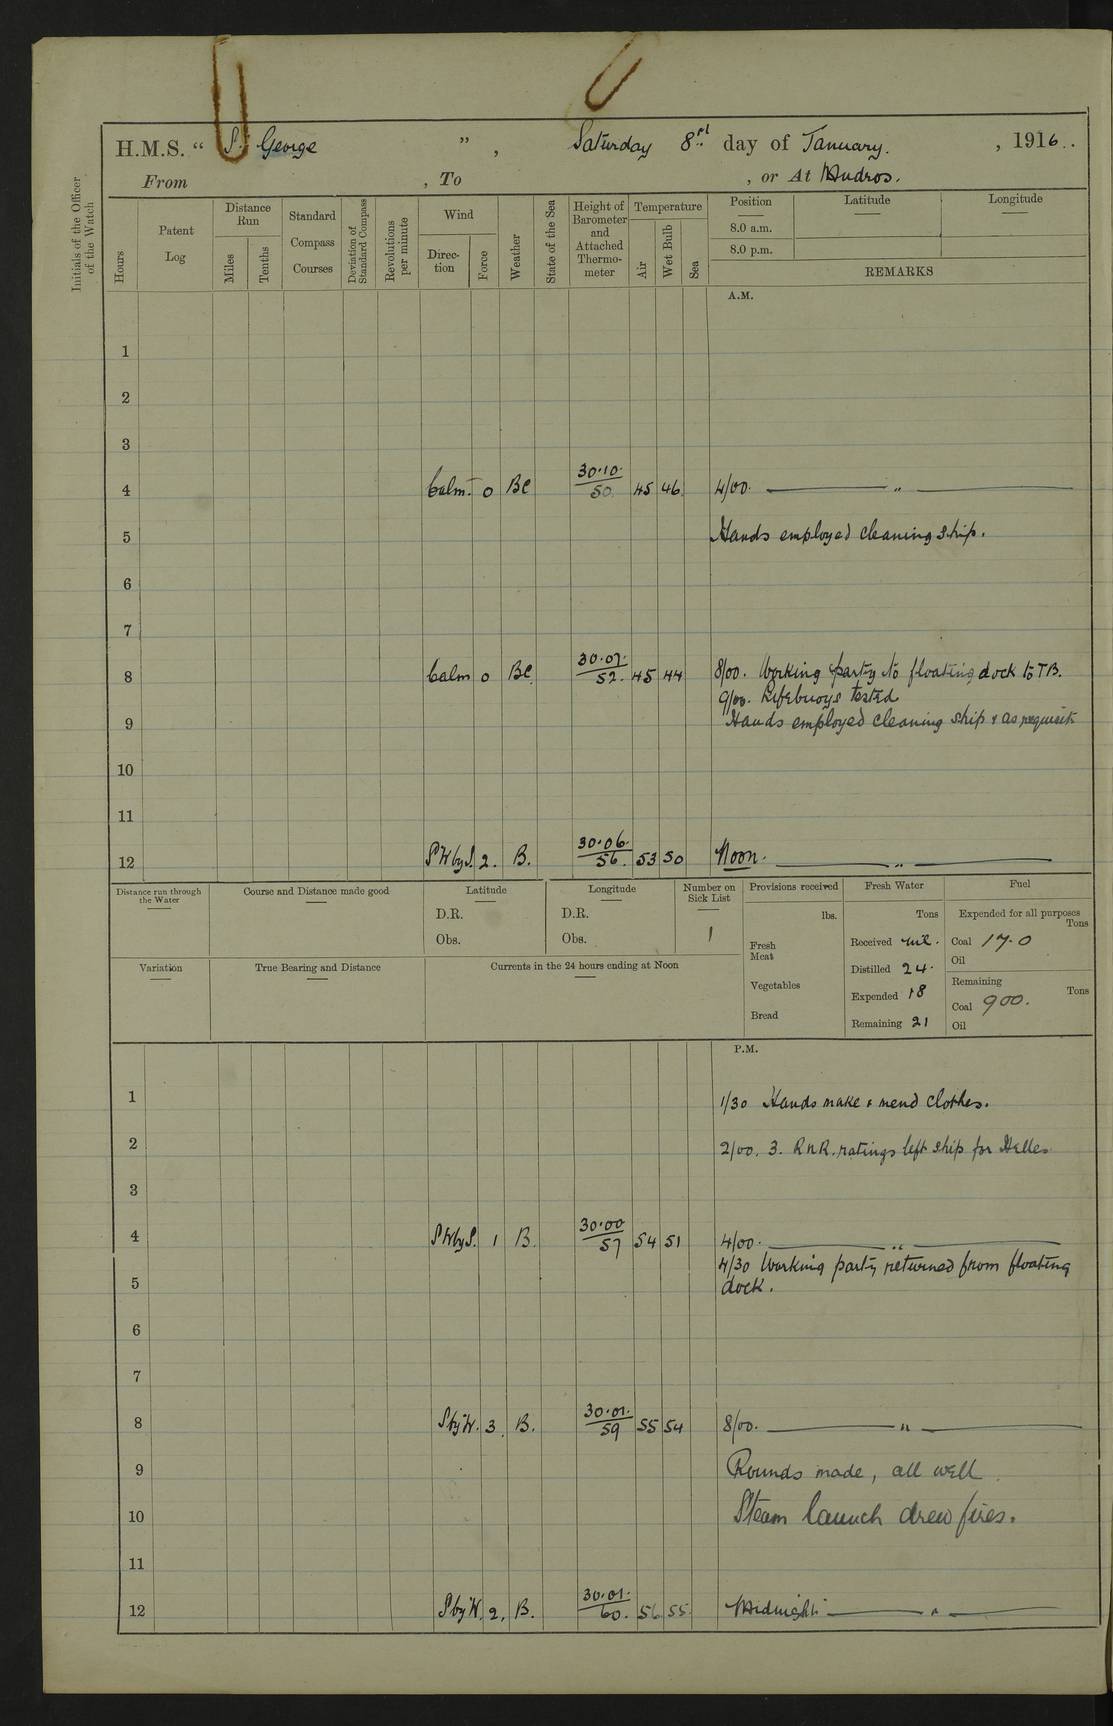 H.M.S. “ St George ” , Saturday 8th day of January. , 1916.
From , To , or At Mudros.
Initials of the Officer of the Watch
Hours
Patent Log
Distance Run
Miles
Tenths
Standard Compass Courses
Deviation of Standard Compass
Revolutions per minute
Wind
Direction
Force
Weather
State of the Sea
Height of Barometer and Attached Thermometer
Temperature
Air
Wet Bulb
Sea
Position Latitude Longitude
8.0 a.m.
8.0 p.m.
REMARKS
A.M.
1
2
3
4 Calm. 0 BC 30.10. 50 45 46 4/00. ——— " ———
5 Hands employed cleaning ship.
6
7
8 Calm 0 BC. 30.07. 52. 45 44 8/00. Working party to floating dock to TB.
9/00. Lifebuoys tested
9 Hands employed cleaning ship & as requisite
10
11
12 SWbyS. 2. B. 30.06. 56. 53 50 Noon. ——— " ———
Distance run through the Water
Course and Distance made good
Latitude
D.R.
Obs.
Longitude
D.R.
Obs.
Number on Sick List
1
Provisions received
lbs.
Fresh Meat
Vegetables
Bread
Fresh Water
Tons
Received nil.
Distilled 24.
Expended 18
Remaining 21
Fuel
Expended for all purposes
Tons
Coal 17.0
Oil
Remaining
Tons
Coal 900.
Oil
Variation
True Bearing and Distance
Currents in the 24 hours ending at Noon
P.M.
1 1/30 Hands make & mend clothes.
2 2/00. 3. RNR. ratings left ship for Helles
3
4 SWbyS. 1 B. 30.00 57 54 51 4/00. ——— " ———
4/30 Working party returned from floating
5 dock.
6
7
8 SbyW. 3. B. 30.01. 59 55 54 8/00. ——— " ———
9 Rounds made, all well
10 Steam launch drew fires.
11
12 SbyW. 2. B. 30.01. 60. 56 55 Midnight ——— " ———